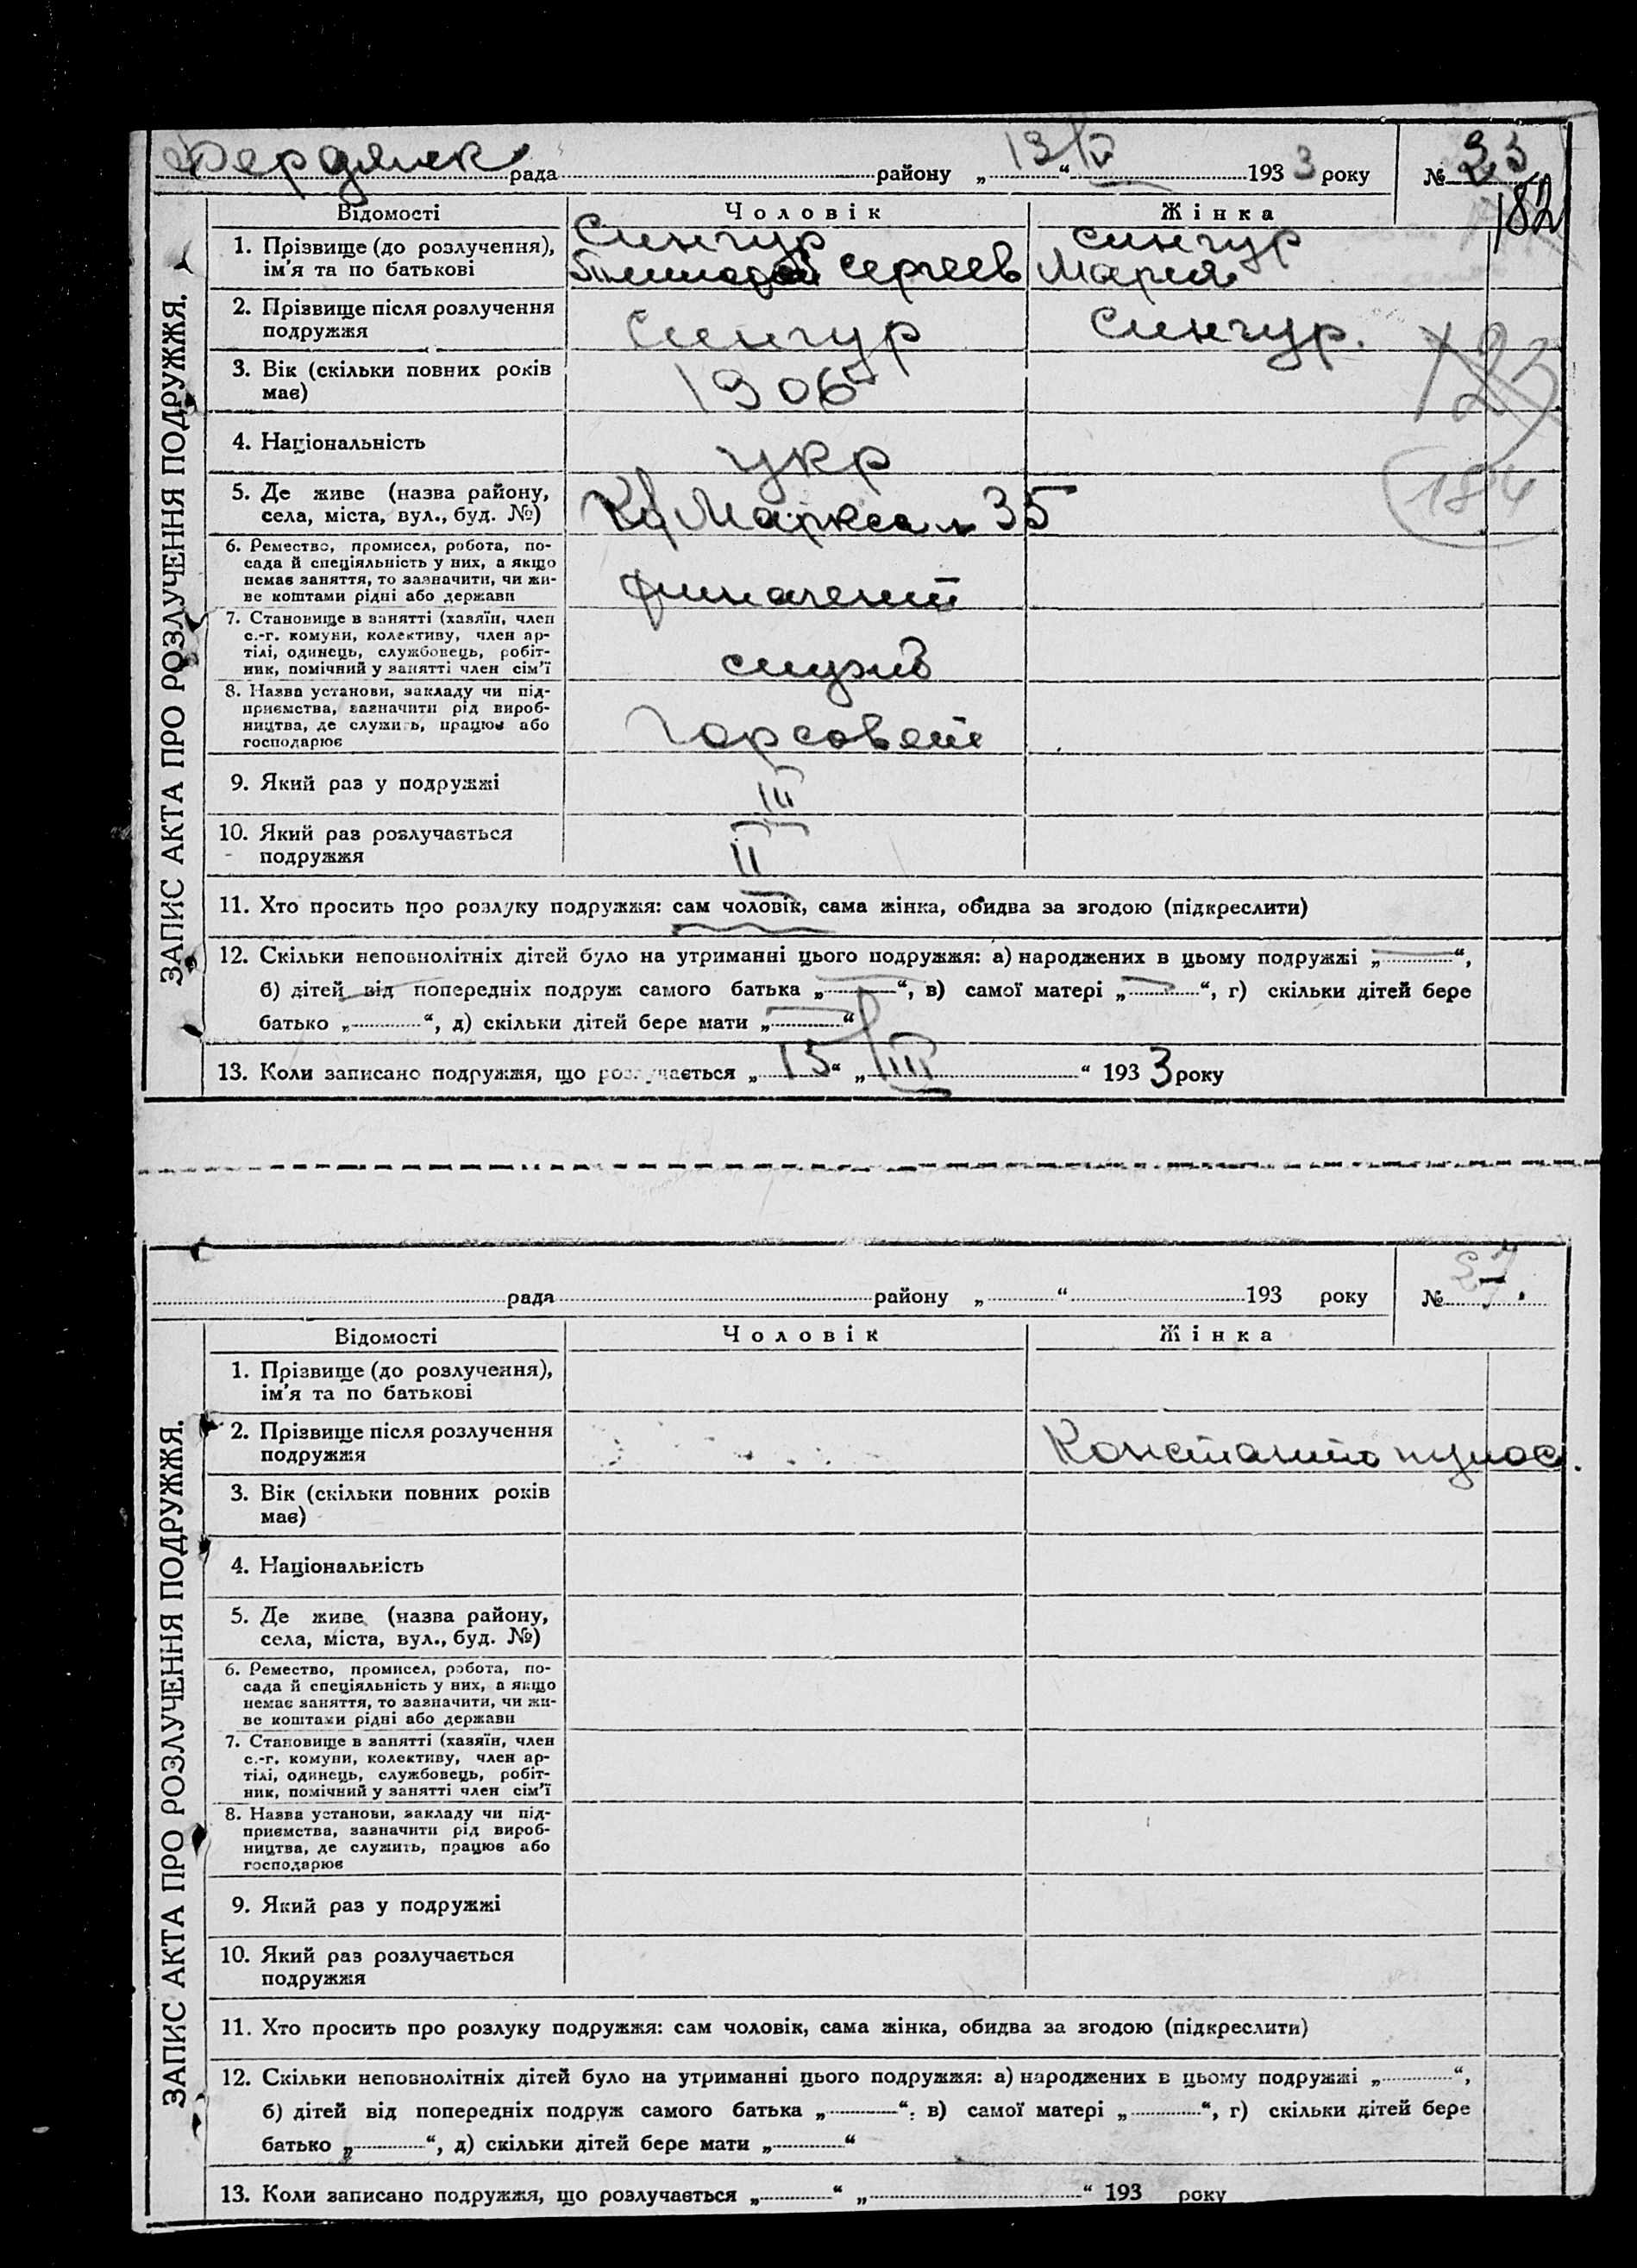 Бердянск рада районe „ 19 “ V 1933 року № 33
182
Відомості Чоловік Жінка
1. Прізвище (до розлучення), ім'я та по батькові
Сингур Сингур
Сергеев Мария
2. Прізвище після розлучення подружжя
Сингур Сингур.
123
3. Вік (скільки повних років має)
1906
4. Національність
укр
184
5. Де живе (назва району, села, міста, вул., буд. №)
К. Маркса 35
6. Ремество, промисел, робота, посада й спеціяльність у них, а якщо немає заняття, то зазначити, чи живе коштами рідні або держави
7. Становище в занятті (хазяїн, член с.-г. комуни, колективу, член артілі, одинець, службовець, робітник, помічний у занятті член сім'ї
служ
8. Назва установи, закладу чи підприємства, зазначити рід виробництва, де служить, працює або господарює
Горсовет
9. Який раз у подружжі
III
10. Який раз розлучається подружжя
II
11. Хто просить про розлуку подружжя: сам чоловік, сама жінка, обидва за згодою (підкреслити)
12. Скільки неповнолітніх дітей було на утриманні цього подружжя: а) народжених в цьому подружжі „ — “,
б) дітей від попередніх подруж самого батька „ — “, в) самої матері „ — “, г) скільки дітей бере
батько „ “, д) скільки дітей бере мати „ — “
13. Коли записано подружжя, що розлучається „ 15 “ „ III “ 1933 року
ЗАПИС АКТА ПРО РОЗЛУЧЕННЯ ПОДРУЖЖЯ.
рада району „ “ 193 року № 27.
Відомості Чоловік Жінка
1. Прізвище (до розлучення), ім'я та по батькові
2. Прізвище після розлучення подружжя
Константинопулос.
3. Вік (скільки повних років має)
4. Національність
5. Де живе (назва району, села, міста, вул., буд. №)
6. Ремество, промисел, робота, посада й спеціяльність у них, а якщо немає заняття, то зазначити, чи живе коштами рідні або держави
7. Становище в занятті (хазяїн, член с.-г. комуни, колективу, член артілі, одинець, службовець, робітник, помічний у занятті член сім'ї
8. Назва установи, закладу чи підприємства, зазначити рід виробництва, де служить, працює або господарює
9. Який раз у подружжі
10. Який раз розлучається подружжя
11. Хто просить про розлуку подружжя: сам чоловік, сама жінка, обидва за згодою (підкреслити)
12. Скільки неповнолітніх дітей було на утриманні цього подружжя: а) народжених в цьому подружжі „ “,
б) дітей від попередніх подруж самого батька „ “. в) самої матері „ “, г) скільки дітей бере
батько „ “, д) скільки дітей бере мати „ “
13. Коли записано подружжя, що розлучається „ “ „ “ 193 року
ЗАПИС АКТА ПРО РОЗЛУЧЕННЯ ПОДРУЖЖЯ.